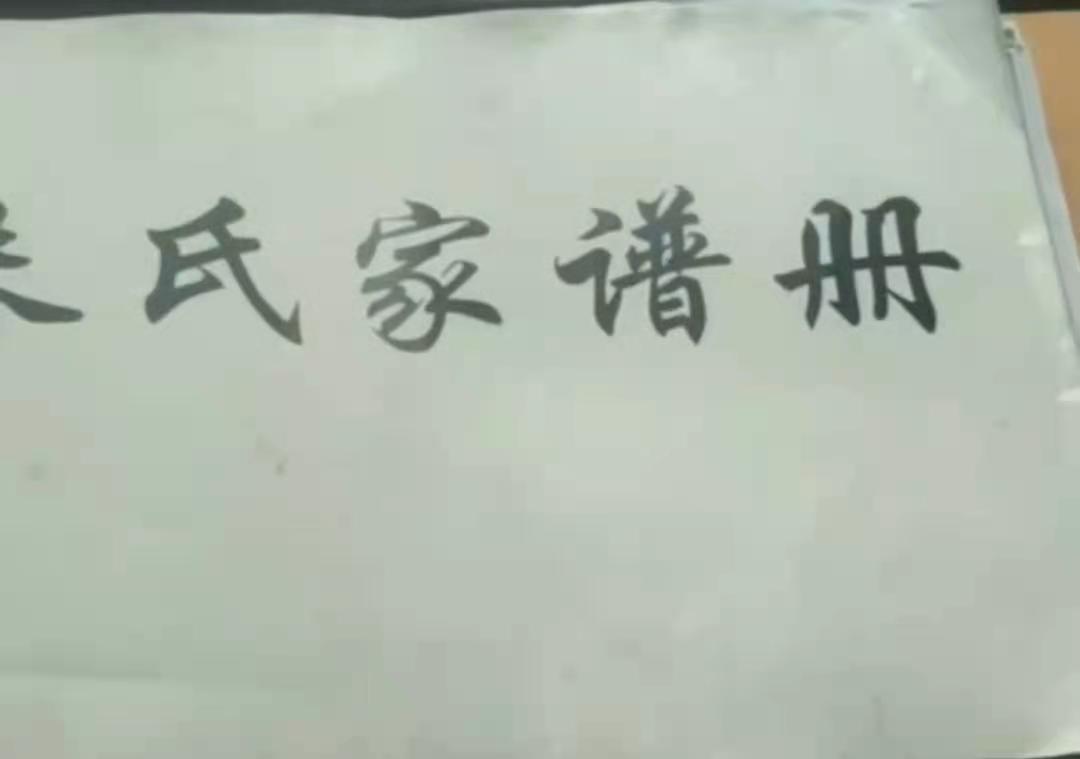 氏家谱册